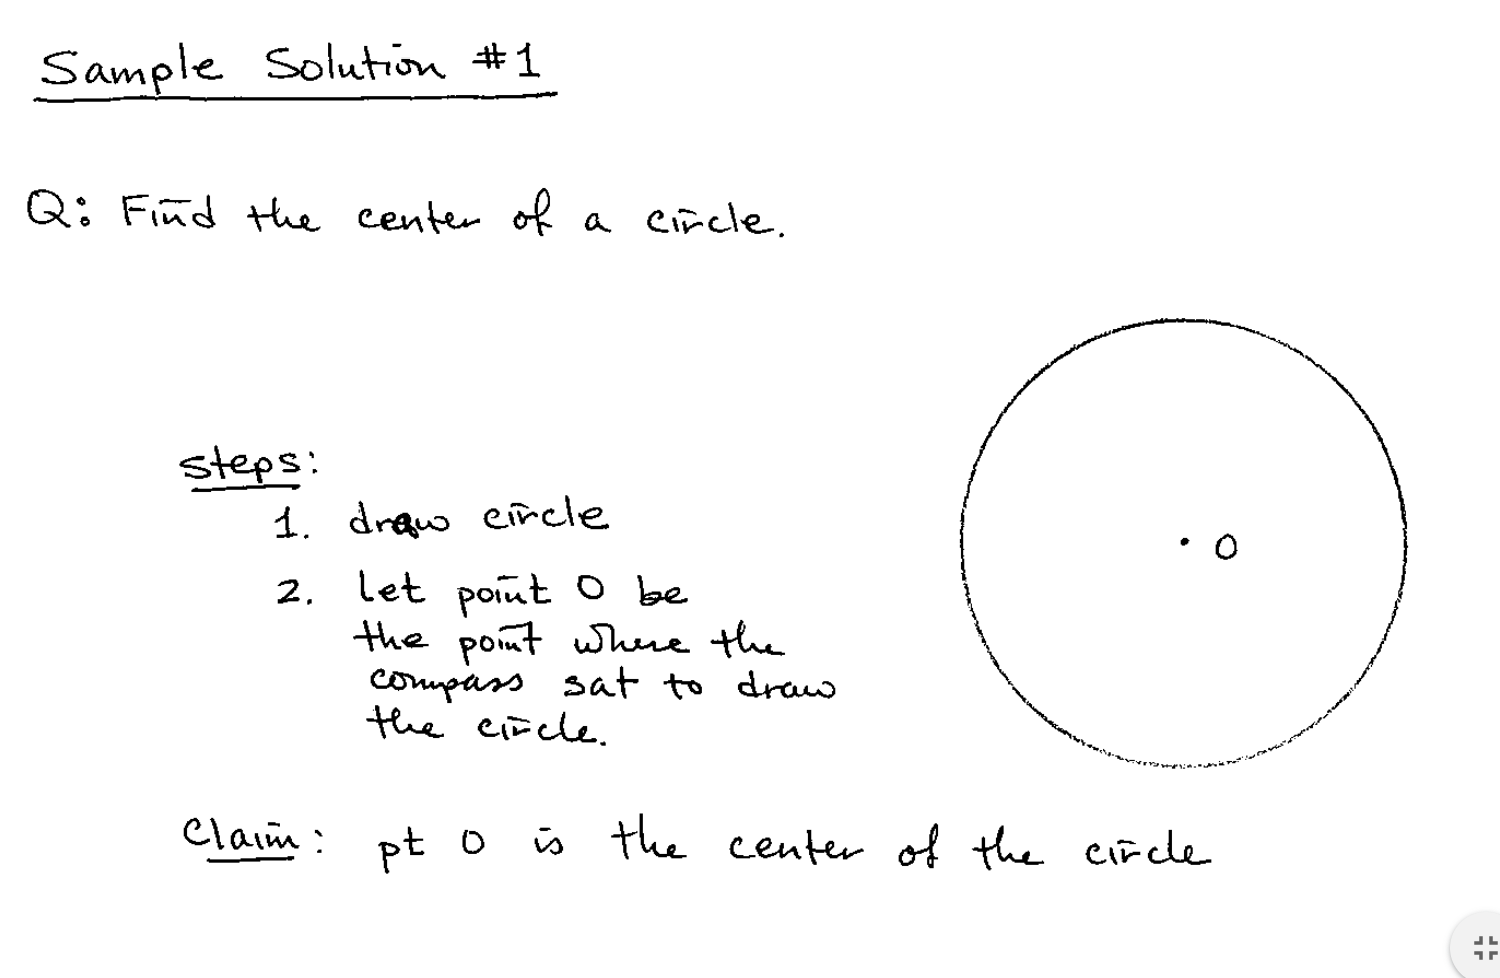 Sample Solution #1
Q: Find the center of a circle.
steps:
1. draw circle
2. let point O be
the point where the
compass sat to draw
the circle.
O
Claim: pt O is the center of the circle